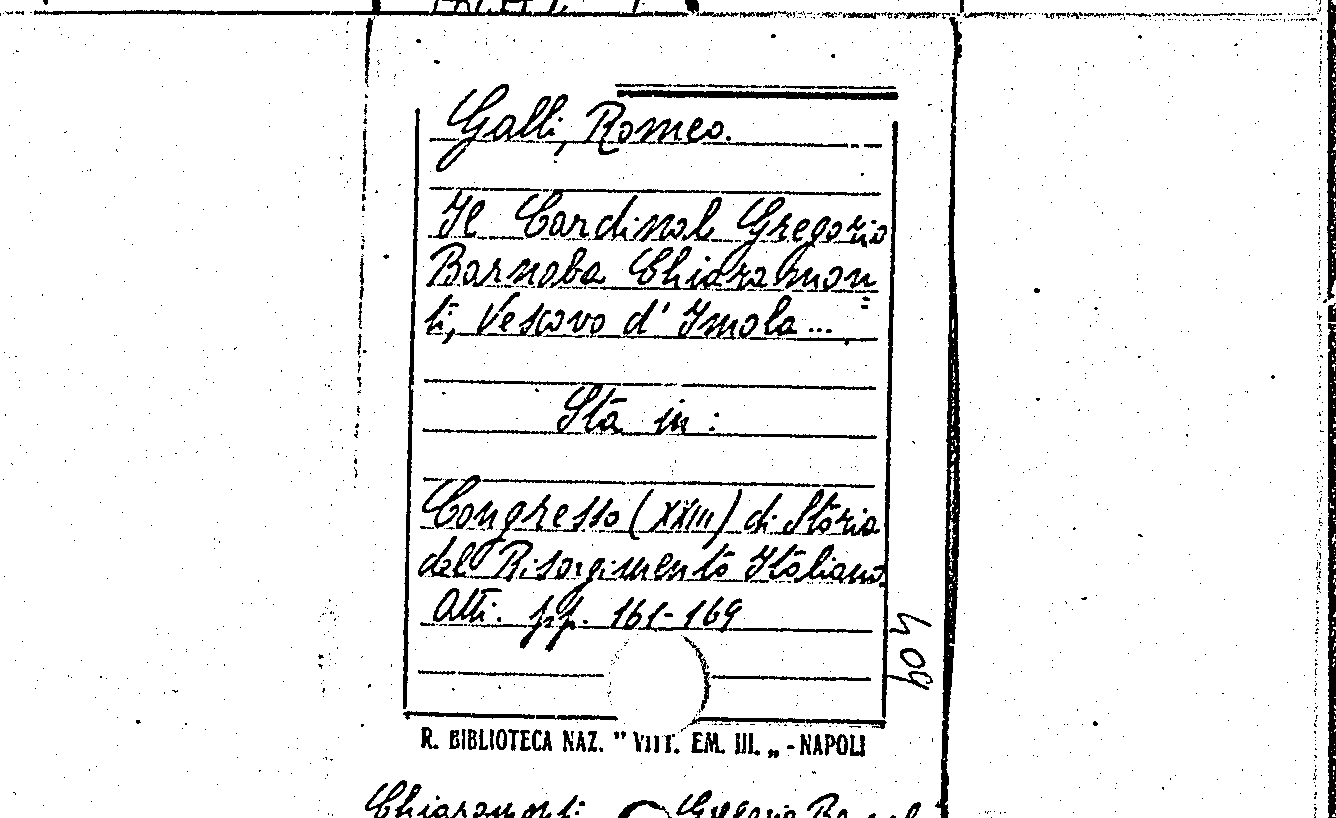 Galli, Romeo.
Il Cardinale Gregorio
Barnaba Chiaramon=
ti, Vescovo d' Imola...
Sta in:
Congresso (XXIII) di Storia
del Risorgimento Italiano
Atti. pp. 161-169
409
R. BIBLIOTECA NAZ. " VITT. EM. III. „ - NAPOLI
Chiaramonti Gregorio